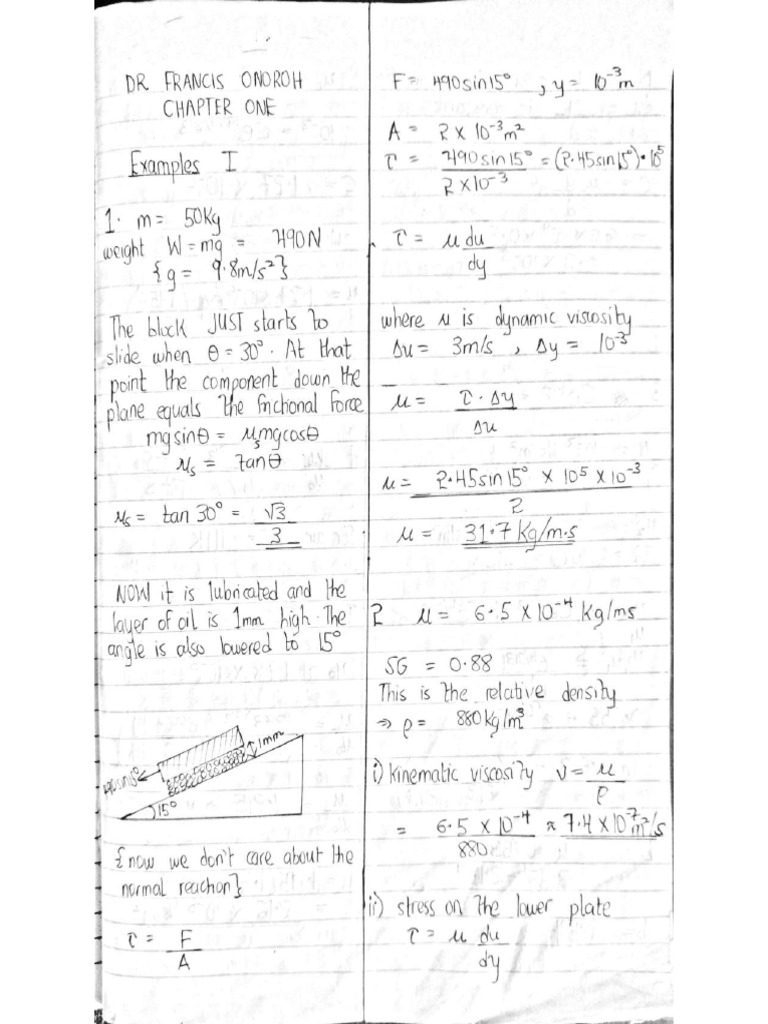 DR FRANCIS ONOROH
CHAPTER ONE
Examples I
1. m = 50Kg
weight W = mg = 490N
{g = 9.8m/s²}
The block JUST starts to
slide when θ = 30°. At that
point the component down the
plane equals the frictional force
mgsinθ = μsmgcosθ
μs = tanθ
μs = tan 30° = √3/3
NOW it is lubricated and the
layer of oil is 1mm high. The
angle is also lowered to 15°
1mm
490sin15°
15°
{now we don't care about the
normal reaction}
τ = F/A
F = 490sin15° , y = 10⁻³m
A = 2 x 10⁻³m²
τ = 490sin15°/2x10⁻³ = (2.45sin15°)•10⁵
τ = μ du/dy
where μ is dynamic viscosity
Δu = 3m/s , Δy = 10⁻³
μ = τ · Δy/Δu
μ = 2.45sin15° x 10⁵ x 10⁻³/2
μ = 31.7 kg/m.s
2 μ = 6.5 x 10⁻⁴ kg/ms
SG = 0.88
This is the relative density
⇒ ρ = 880kg/m³
i) kinematic viscosity ν = μ/ρ
= 6.5 x 10⁻⁴/880 ≈ 7.4 x 10⁻⁷m²/s
ii) stress on the lower plate
τ = μ du/dy